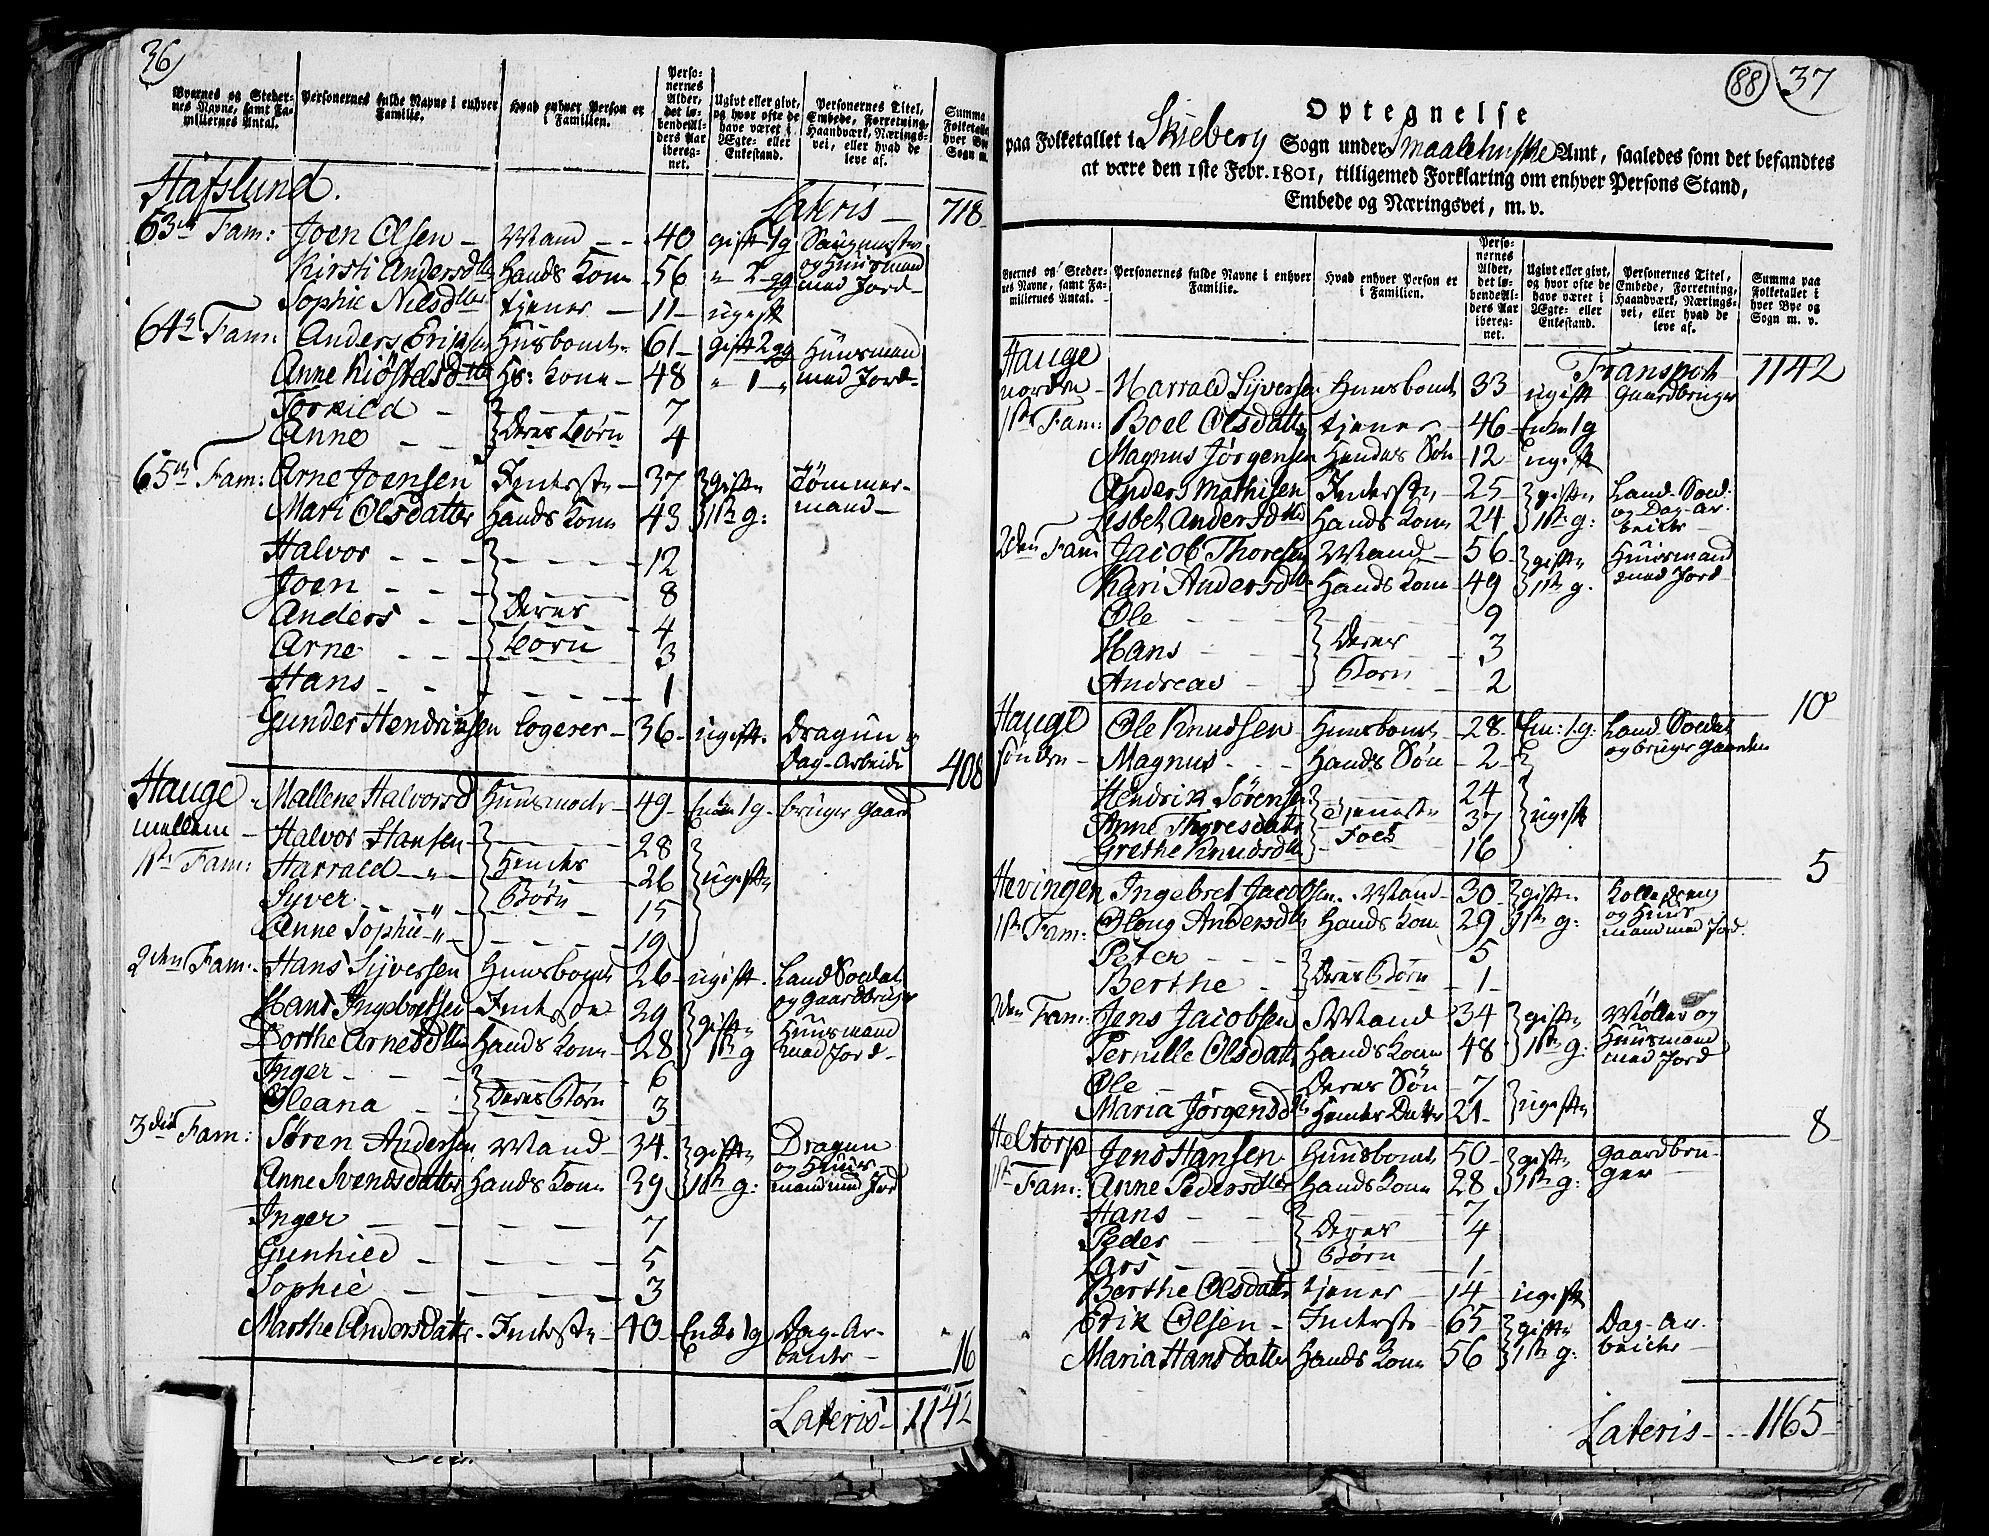 36
Byernes og Steder-
nes Navne, samt Fa-
miliernes Antal.
Personernes fulde Navne i enhver
Familie.
Hvad enhver Person er
i Familien.
Perso-
nernes
Alder,
det lø-
bende Al-
ders Aar
ibereg-
net.
Ugivt eller givt,
og hvor ofte de
have været i
Ægte- eller
Enkestand.
Personernes Titel,
Embede, Forretning,
Haandværk, Nærings-
vei, eller hvad de
leve af.
Summa
Folketallet
hver Bye
Sogn m.
Hafslund.
Lateris — 718
63de Fam: Joen Olsen — Mand — 40 gift 1g Saugmester
Kirsti Andersdtr Hands Kone 56 " 2 gg og Huusmand
Sophie Nilsdtter tjener — 11 — ugift med Jord —
64de Fam: Anders Erichsen Husbonde 61 — gift 2 gg Huusmand
Anne Kiøstelsdtr Hs: Kone — 48 " 1 — " med Jord —
Torkild — 7
Anne — Deres børn 4
65de Fam: Arne Joensen Inderste — 37 gifte Tømmer-
Mari Olsdatter Hands Kone 43 1ste g: mand —
Halvor — 12
Joen — 8
Anders — Deres 4
Arne — børn 3
Hans — 1
Gunder Hendriksen Logerer — 36 — ugift. Dragun og
Dag-Arbeider 408
Hauge Mallene Halvorsd Huusmoder — 49 — Enke 1g — bruger Gaard
mellem — Halvor Hansen — 28
1ste Fam: Harrald — " — Hendes 26 ugifte
Syver — " Børn 15
Anne Sophie — " — 19
2den Fam: Hans Syversen Huusbonde 26 — ugift. Land Soldat
og Gaardbruger
Hans Ingebretsen Inderste 29 gifte Huusmand
Dorthe Arnesdtter Hands Kone — 28 1ste g med Jord —
Inger — 6
Oleana — Deres Børn 3
3die Fam: Søren Andersen Mand — 34. gifte Dragun
og Huus-
Anne Svendsdatter Hands Kone 39 1ste g: mand med Jord
Inger — 7
Gunhild — 5
Sophie — 3
Marthe Andersdatter — Inderste — 40 — Enke 1g Dag-Ar-
beider — 16
Lateris — 1142
88 37
Optegnelse
paa Folketallet i Skieberg Sogn under Smaalehnske Amt, saaledes som det befandtes
at være den 1ste Febr. 1801, tilligemed Forklaring om enhver Persons Stand,
Embede og Næringsvei, m. v.
Byernes og Steder-
nes Navne, samt Fa-
miliernes Antal.
Personernes fulde Navne i enhver
Familie.
Hvad enhver Person er
i Familien.
Perso-
nernes
Alder,
det lø-
bende Al-
ders Aar
ibereg-
net.
Ugivt eller givt,
og hvor ofte de
have været i
Ægte- eller
Enkestand.
Personernes Titel,
Embede, Forretning,
Haandværk, Nærings-
vei, eller hvad de
leve af.
Summa paa
Folketallet i
hver Bye og
Sogn m. v.
Hauge Transport 1142
nordre — Harrald Syversen Huusbonde 33 ugift Gaardbruger
1ste Fam: Boel Olsdatter tjener — 46 — Enke 1g
Magnus Jørgensen Hendes Søn — 12 — ugift
Anders Mathisen Inderste — 25 — gifte Land-Sold:
og Dag-ar-
Lisbet Andersdtter Hands Kone 24 1ste g: beider —
2den Fam Jacob Thoresen Mand — 56 — gifte Huusmand
Kari Andersdtr Hands Kone — 49 1ste g. med Jord —
Ole — 9
Hans — Deres 3
Andreas — Børn 2 10
Hauge Ole Knudsen Huusbonde — 28 — Em: 1g: Land Soldat
og bruger Gaarden
søndre — Magnus — Hands Søn — 2 —
Hendrik Sørensen — 24
Anne Thoresdatter Tjeneste 37 ugifte
Grethe Knudsdtr Folk 16 5
Hevingen Ingebret Jacobsen. Mand — 30 — gifte
1ste Fam: Oloug Andersdtr Hands Kone 29 1ste g: og Huus
mand med Jord.
Peter — 5
Berthe — Deres Børn — 1 —
2den Fam: Jens Jacobsen Mand 34 gifte Møller og
Pernille Olsdatr Hands Kone 48 1ste g: Huusmand
med Jord
Ole — Deres Søn — 7
Maria Jørgensdtr Hendes Datter 21 — ugifte 8
Heltorp Jens Hansen Huusbonde 50 — gifte Gaardbru-
1ste Fam: Anne Pedersdtter Hands Kone — 28 1ste g: ger
Hans — 7
Peder — Deres 4
Lars — Børn — 1 —
Berthe Olsdatr tjener — 14 — ugift
Erik Olsen — Inderste — 65 — gifte Dag-ar-
Maria Hansdatter Hands Kone 56 1ste g: beider —
Lateris — 1165 —